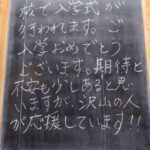 校で入学式が
行われます。ご
入学おめでとう
ございます。期待と
不安も少しあると思
いますが、沢山の人
が応援しています!!